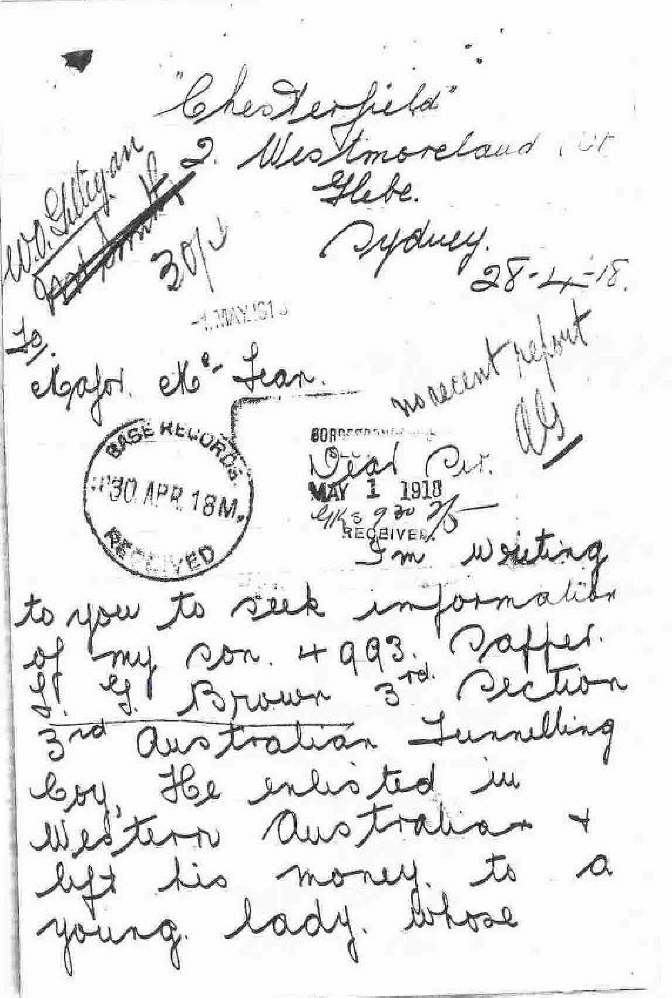 "Chesterfield"
2. Westmoreland St
Glebe.
Sydney.
28-4-18.
W.O. Gilligan
30/4
-1.MAY.1918
To/
Major. Mc Lean.
no recent report
BASE RECORDS
30 APR. 18 M.
RECEIVED
Dear Sir.
MAY 1 1918
RECEIVED
I'm writing
to you to seek information
of my son. 4993. Sapper.
G. Brown 3rd Section
3rd Australian Tunnelling
Coy, He enlisted in
Western Australian +
left his money. to a
young. lady. whose